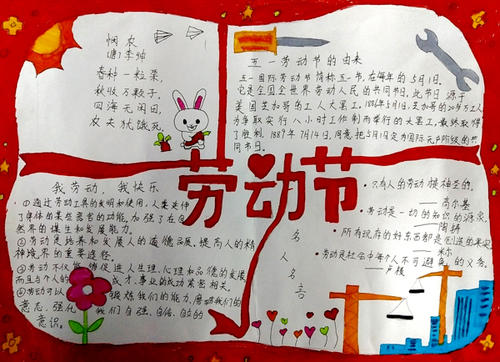 悯农
(唐)李绅
春种一粒粟,
秋收万颗子。
四海无闲田,
农夫犹饿死。
五一劳动节的由来
五一国际劳动节简称五一节,在每年的5月1日。
它是全国全世界劳动人民的共同节日。此节日源于
美国芝加哥的工人大罢工。1886年5月1日,芝加哥的20多万工人
为争取实行八小时工作制而举行的大罢工,最终取得
了胜利。1889年7月14日,同意把5月1日定为国际无产阶级的共
同节日。
劳动节
我劳动,我快乐
①通过劳动工具的发明和使用,人类延伸
了身体的某些器官的功能,加强了在自
然界的谋生和发展能力。
②劳动是培养和发展人的道德品质,提高人的精
神境界的重要途径。
③劳动不仅能够促进人生理、心理和品德的发展
而且与个人的 成才、事业的成功紧密相关。
④劳动可以 锻炼我们的能力,磨砺我们的
意志,强化 我们自强、自信、自立的
意识。
名人名言
只有人的劳动才是神圣的。
——高尔基
劳动是一切的知识的源泉。
——陶铸
所有现存的好东西都是创造的果实
——米尔
劳动是社会中每个人不可避免的义务。
——卢梭